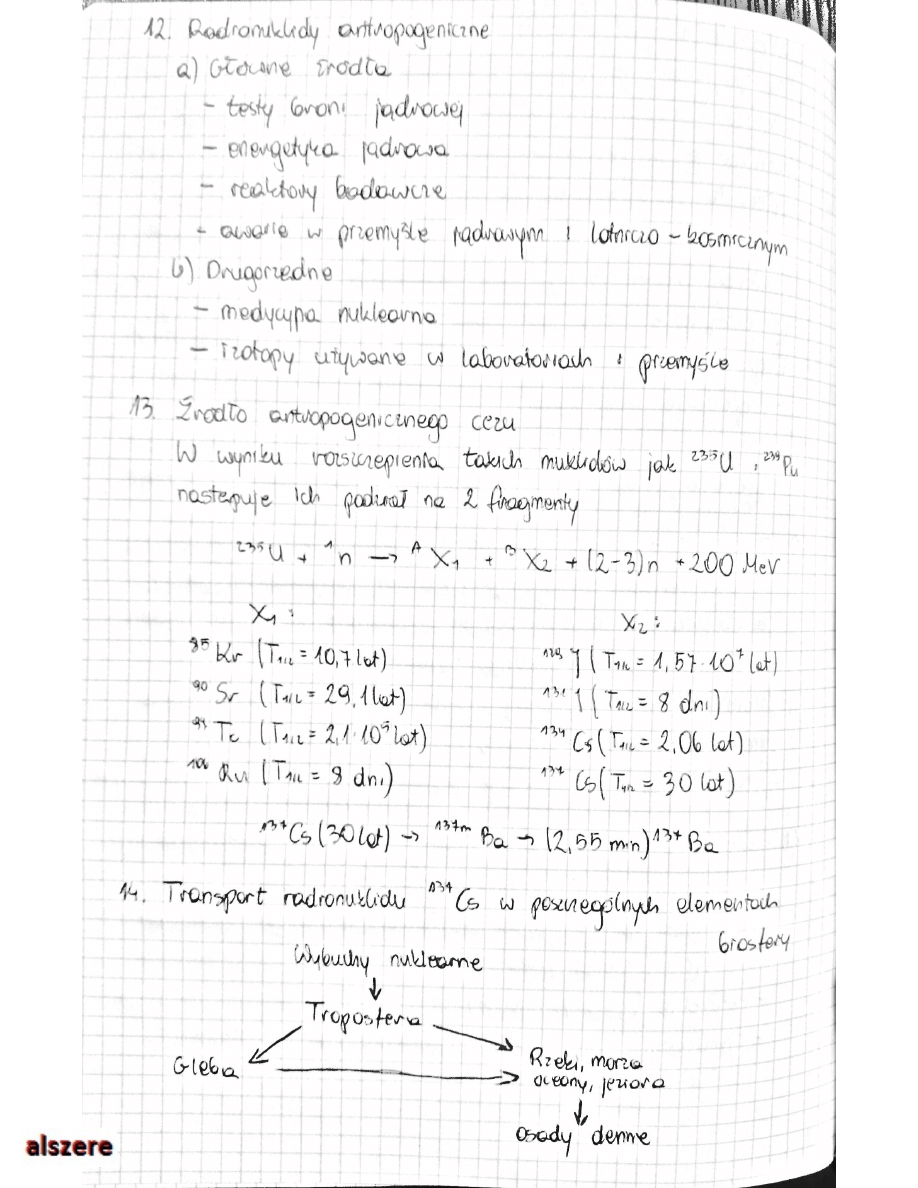 12. Radionuklidy antropogeniczne
a) Główne źródła
- testy broni jądrowej
- energetyka jądrowa
- reaktory badawcze
- awarie w przemyśle jądrowym i lotniczo-kosmicznym
b) Drugorzędne
- medycyna nuklearna
- izotopy używane w laboratoriach i przemyśle
13. Źródło antropogenicznego cezu
W wyniku rozszczepienia takich nuklidów jak ²³⁵U i ²³⁹Pu
następuje ich podział na 2 fragmenty
²³⁵U + ¹n → ᴬX₁ + ᴮX₂ + (2-3)n + 200 MeV
X₁: X₂:
⁸⁵Kr (T₁/₂ = 10,7 lat) ¹²⁹J (T₁/₂ = 1,57·10⁷ lat)
⁹⁰Sr (T₁/₂ = 29,1 lat) ¹³¹J (T₁/₂ = 8 dni)
⁹⁹Tc (T₁/₂ = 2,1·10⁵ lat) ¹³⁴Cs (T₁/₂ = 2,06 lat)
¹⁰⁶Ru (T₁/₂ = 8 dni) ¹³⁷Cs (T₁/₂ = 30 lat)
¹³⁷Cs (30 lat) → ¹³⁷ᵐBa → (2,55 min) ¹³⁷Ba
14. Transport radionuklidu ¹³⁷Cs w poszczególnych elementach
biosfery
Wybuchy nuklearne
↓
Troposfera
Gleba → Rzeki, morza
oceany, jeziora
↓
Osady denne
alszere